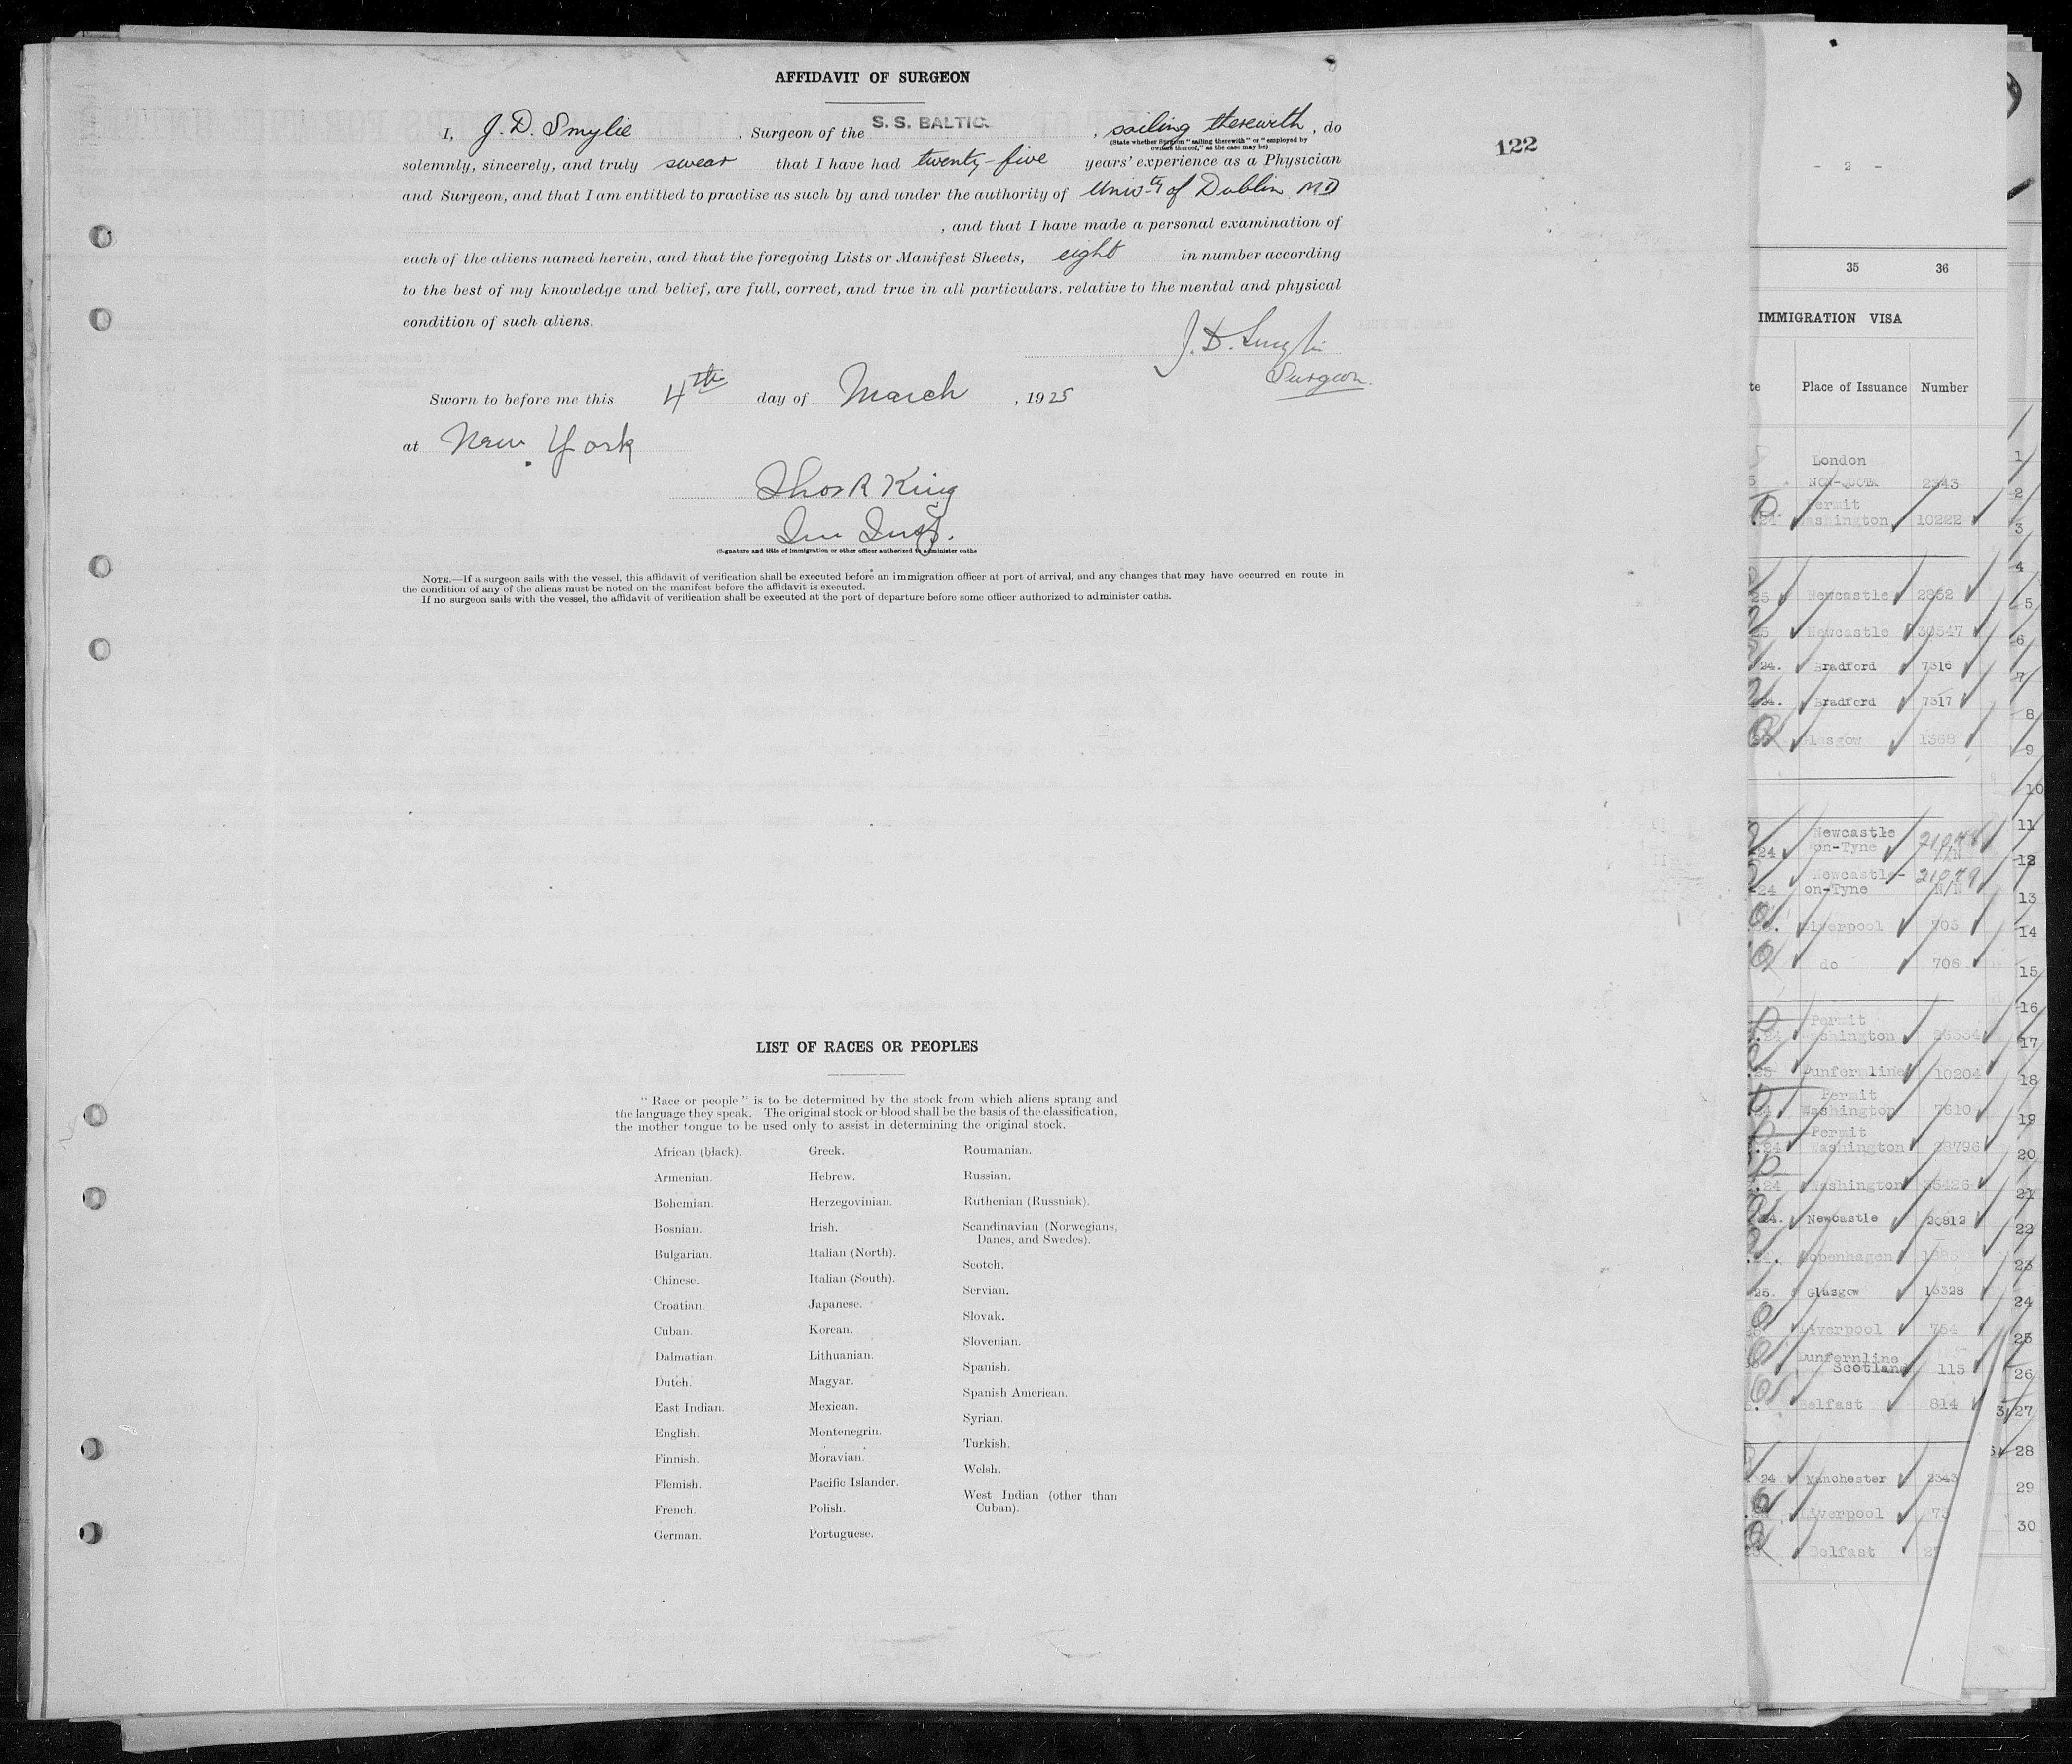 AFFIDAVIT OF SURGEON
I, J. D. Smylie, Surgeon of the S. S. BALTIC, sailing therewith, do
(State whether Surgeon "sailing therewith" or "employed by
owners thereof," as the case may be)
122
solemnly, sincerely, and truly swear that I have had twenty-five years' experience as a Physician
and Surgeon, and that I am entitled to practise as such by and under the authority of Univ-ty of Dublin MD
, and that I have made a personal examination of
each of the aliens named herein, and that the foregoing Lists or Manifest Sheets, eight in number according
to the best of my knowledge and belief, are full, correct, and true in all particulars, relative to the mental and physical
condition of such aliens.
J. D. Smylie
Surgeon.
Sworn to before me this 4th day of March, 1925
at New York
Thos R King
Imm Insp.
(Signature and title of Immigration or other officer authorized to administer oaths
NOTE.—If a surgeon sails with the vessel, this affidavit of verification shall be executed before an immigration officer at port of arrival, and any changes that may have occurred en route in
the condition of any of the aliens must be noted on the manifest before the affidavit is executed.
If no surgeon sails with the vessel, the affidavit of verification shall be executed at the port of departure before some officer authorized to administer oaths.
LIST OF RACES OR PEOPLES
"Race or people" is to be determined by the stock from which aliens sprang and
the language they speak. The original stock or blood shall be the basis of the classification,
the mother tongue to be used only to assist in determining the original stock.
African (black).
Armenian.
Bohemian.
Bosnian.
Bulgarian.
Chinese.
Croatian.
Cuban.
Dalmatian.
Dutch.
East Indian.
English.
Finnish.
Flemish.
French.
German.
Greek.
Hebrew.
Herzegovinian.
Irish.
Italian (North).
Italian (South).
Japanese.
Korean.
Lithuanian.
Magyar.
Mexican.
Montenegrin.
Moravian.
Pacific Islander.
Polish.
Portuguese.
Roumanian.
Russian.
Ruthenian (Russniak).
Scandinavian (Norwegians,
Danes, and Swedes).
Scotch.
Servian.
Slovak.
Slovenian.
Spanish.
Spanish American.
Syrian.
Turkish.
Welsh.
West Indian (other than
Cuban).
- 2 -
35 36
IMMIGRATION VISA
te Place of Issuance Number
London
NON-QUOTA 2343
Permit
Washington 10222
Newcastle 2862
Newcastle 30547
24. Bradford 7316
24. Bradford 7317
Glasgow 1368
Newcastle
24 on-Tyne
Newcastle-
24 on-Tyne
Liverpool 705
do 706
Permit
24 Washington 26334
Dunfermline 10204
Permit
Washington 7610
Permit
24 Washington 28796
24 Washington 35426
24. Newcastle 20812
Copenhagen
25. Glasgow 13328
Liverpool 754
Dunfernline
Scotland 115
Belfast 814
24 Manchester 2343
Liverpool 73
Belfast
1
2
3
4
5
6
7
8
9
10
11
12
13
14
15
16
17
18
19
20
21
22
23
24
25
26
27
28
29
30